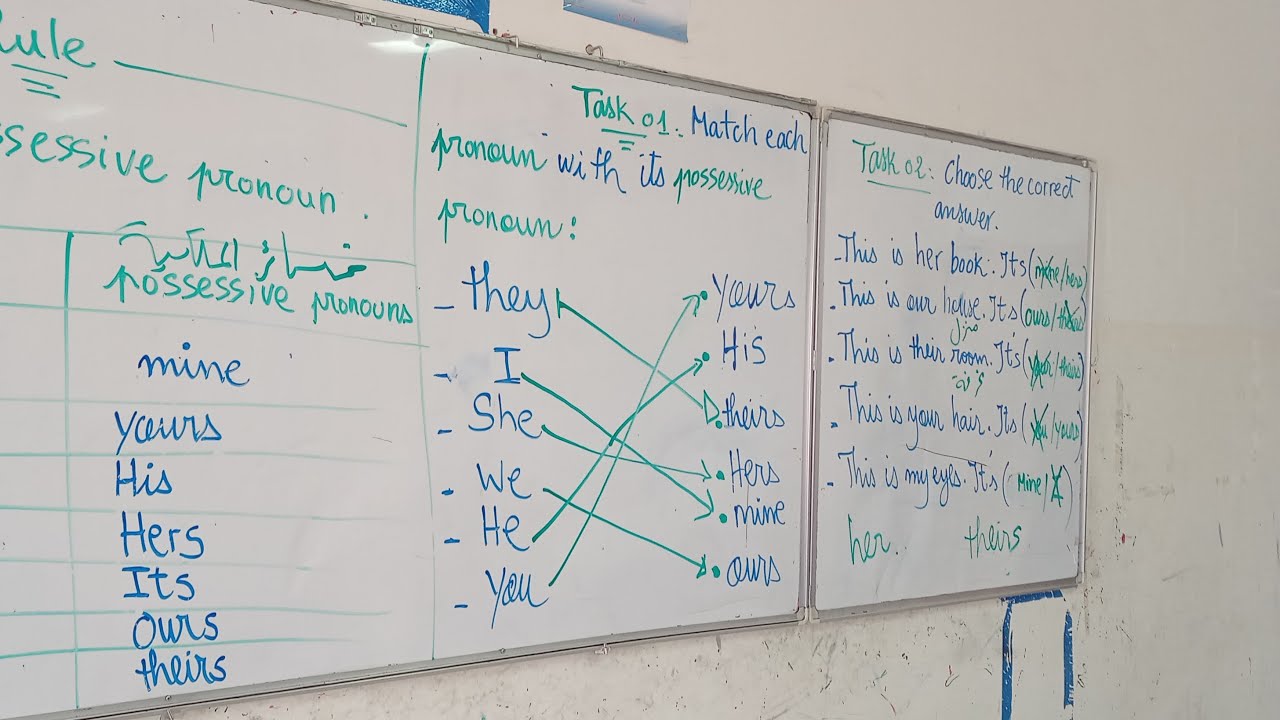 Rule
ssessive pronoun.
ضمائر الملكية
possessive pronouns
mine
yours
His
Hers
Its
ours
theirs
Task 01: Match each
pronoun with its possessive
pronoun:
- they
- I
- She
- We
- He
- You
yours
His
theirs
Hers
mine
ours
Task 02: Choose the correct
answer.
- This is her book. Its (mine/hers)
- This is our house. It's (ours/theirs)
منزل
- This is their room. It's (your/theirs)
غرفة
- This is your hair. It's (you/yours)
- This is my eyes. It's (Mine/
her. theirs